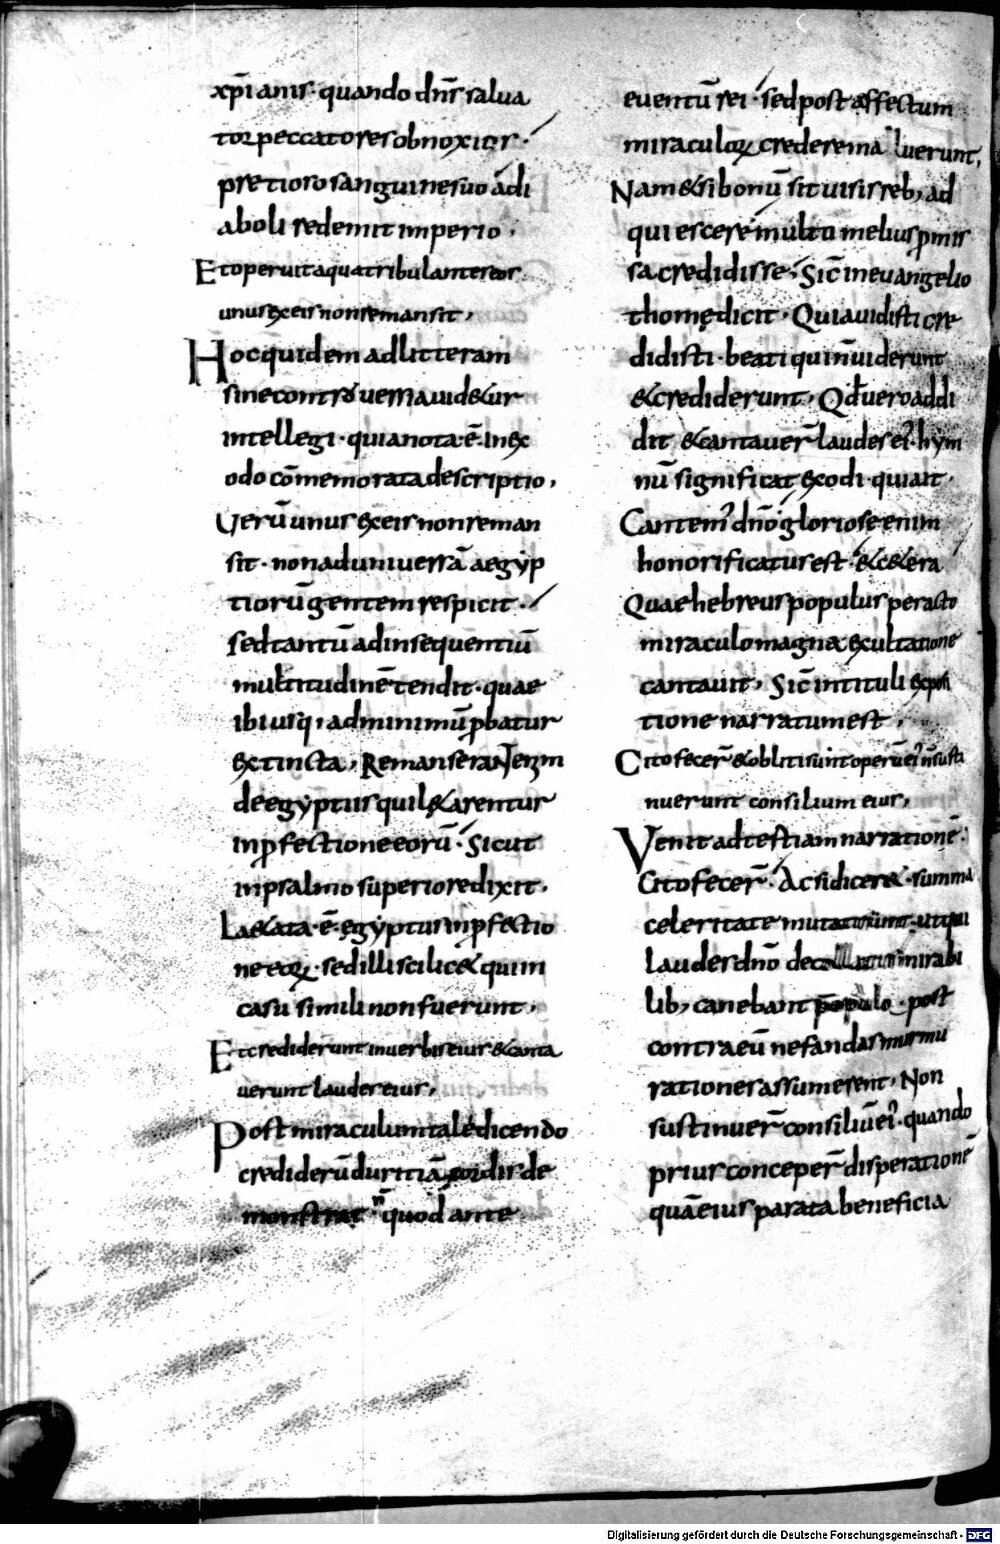 xp̄ianis· quando dn̄s salua
tor peccatores obnoxios·
pretioso sanguine suo a di
aboli redemit imperio·
Et operuit aqua tribulantes eos
unus ex eis non remansit,
Hoc quidem ad litteram
sine controuersia uidetur
intellegi· quia nota ē· In ex
odo cōmemorata descriptio,
Uerū unus ex eis non reman
sit· non ad uniuersā aegyp
tiorū gentem respicit·
sed tantū ad insequentiū
multitudinē tendit· quae
ibi usq; ad minimū ꝓbatur
extincta, Remanserant enim
de egyptiis qui lętarentur
in ꝓfectione eorū· Sicut
in psalmo superiore dixit,
Laetata ē· ęgyptus in ꝓfectio
ne eoꝝ· sed illi scilicet qui in
casu simili non fuerunt,
Et crediderunt in uerbis eius & canta
uerunt laudes eius,
Post miraculum tale dicendo
crediderū duritiā cordis de
monstrat quod ante
euentū rei· sed post affectum
miraculoꝝ credere maluerunt,
Nam & si bonū sit uisis reb; ad
quiescere multo melius ꝓmis
sa credidisse· Sic̄ in euangelio
thomę dicit· Quia uidisti cre
didisti· beati qui n̄ uiderunt
& crediderunt, Qđ uero addi
dit & cantauer̄ laudes ei'· hym
nū significat exodi· qui ait·
Cantem' dn̄o gloriose enim
honorificatus est· & cetera
Quae hebreus populus peracto
miraculo magna exultatione
cantauit, Sic̄ in tituli expos
tione narratum est,
Cito fecer̄ & obliti sunt operū ei' n̄ susti
nuerunt consilium eius,
Venit ad tertiam narrationē·
Cito fecer̄· Ac si diceret· summa
celeritate mutati sunt· ut qui
laudes dn̄o de mirabi
lib; canebant populo· post
contra eū nefandas murmu
rationes assumerent, Non
sustinuer̄ consiliū ei'· quando
prius conceper̄ disperationē
quā eius parata beneficia
Digitalisierung gefördert durch die Deutsche Forschungsgemeinschaft - DFG